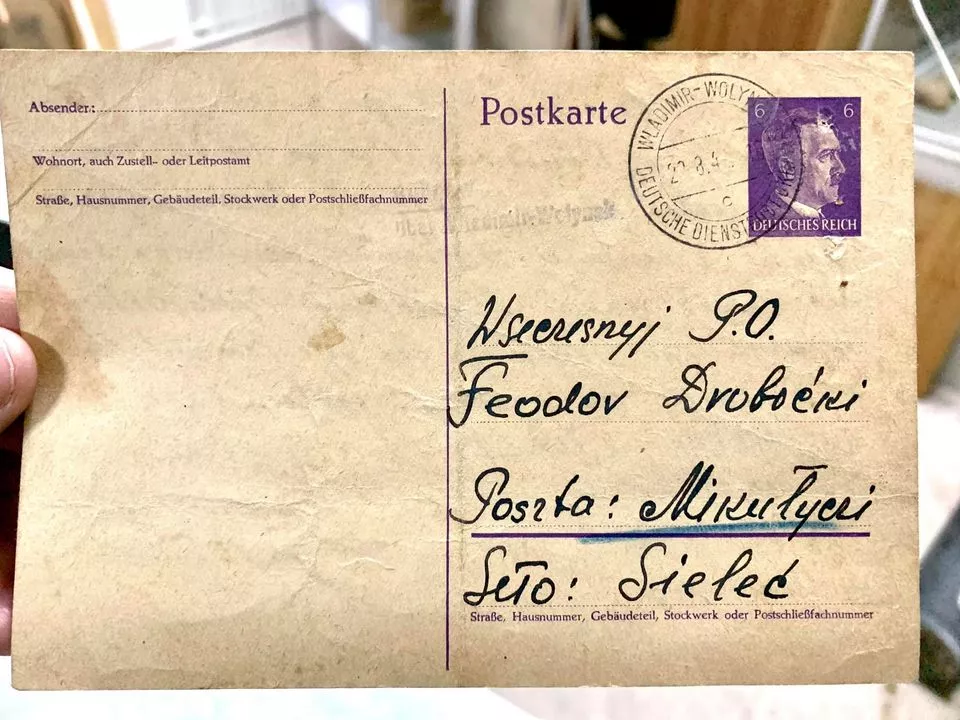 Absender:
Wohnort, auch Zustell- oder Leitpostamt
Straße, Hausnummer, Gebäudeteil, Stockwerk oder Postschließfachnummer
Postkarte
WLADIMIR-WOLYN
DEUTSCHE DIENSTPOST
c
6 6
DEUTSCHES REICH
Wsecresnyj P.O.
Feodor Droboćki
Poszta: Mikułyczi
Seło: Sieleć
Straße, Hausnummer, Gebäudeteil, Stockwerk oder Postschließfachnummer